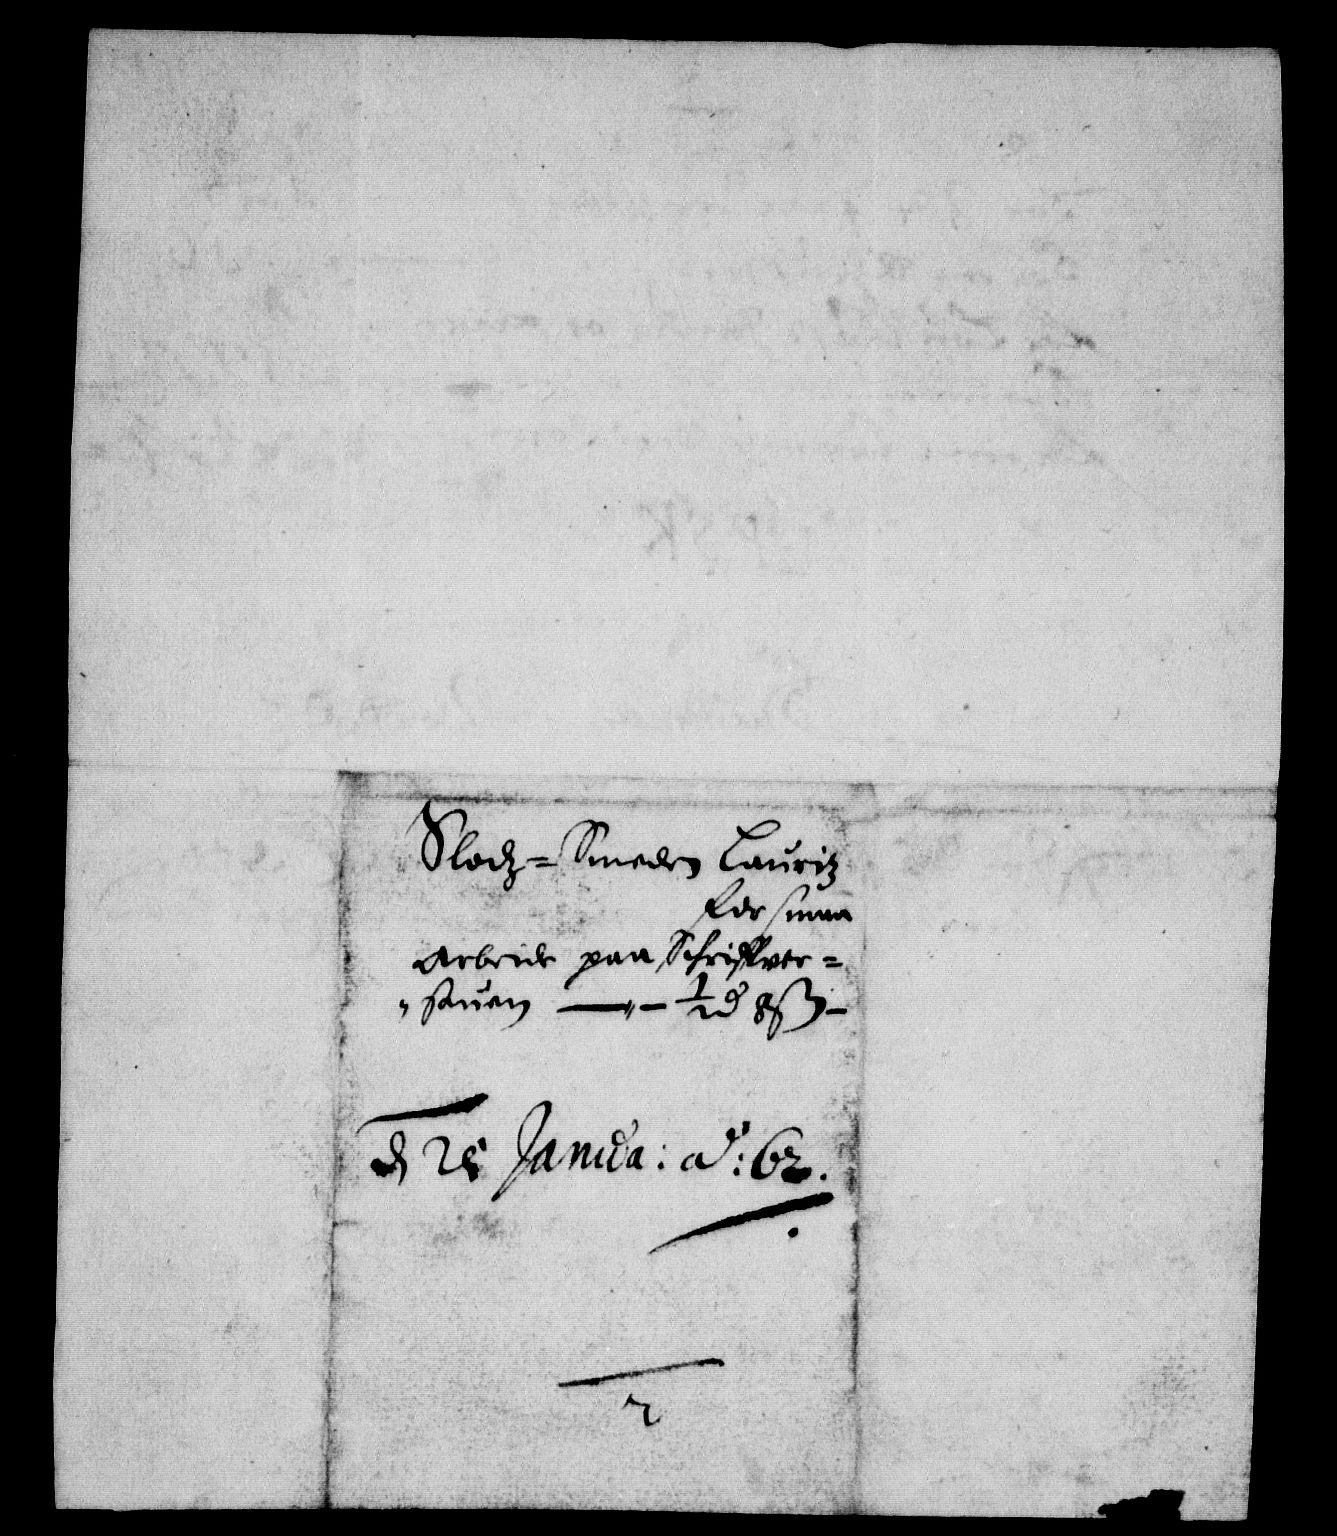 Slodz=Smeden Lauritz
for sinnā
arbeide paa Schriffver=
„ stuen —„— ½ d 8 ß —
d 25 Janua: aō: 62.
2